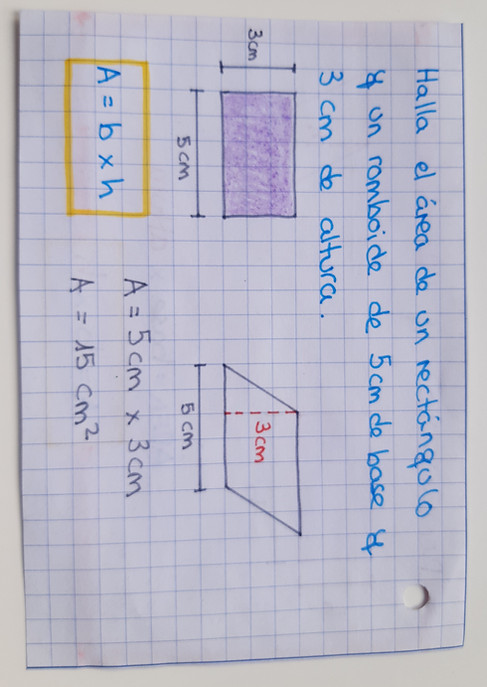 Halla el área de un rectángulo
y un romboide de 5 cm de base y
3 cm de altura.
3 cm
5 cm
3 cm
5 cm
A = b x h
A = 5 cm x 3 cm
A = 15 cm²